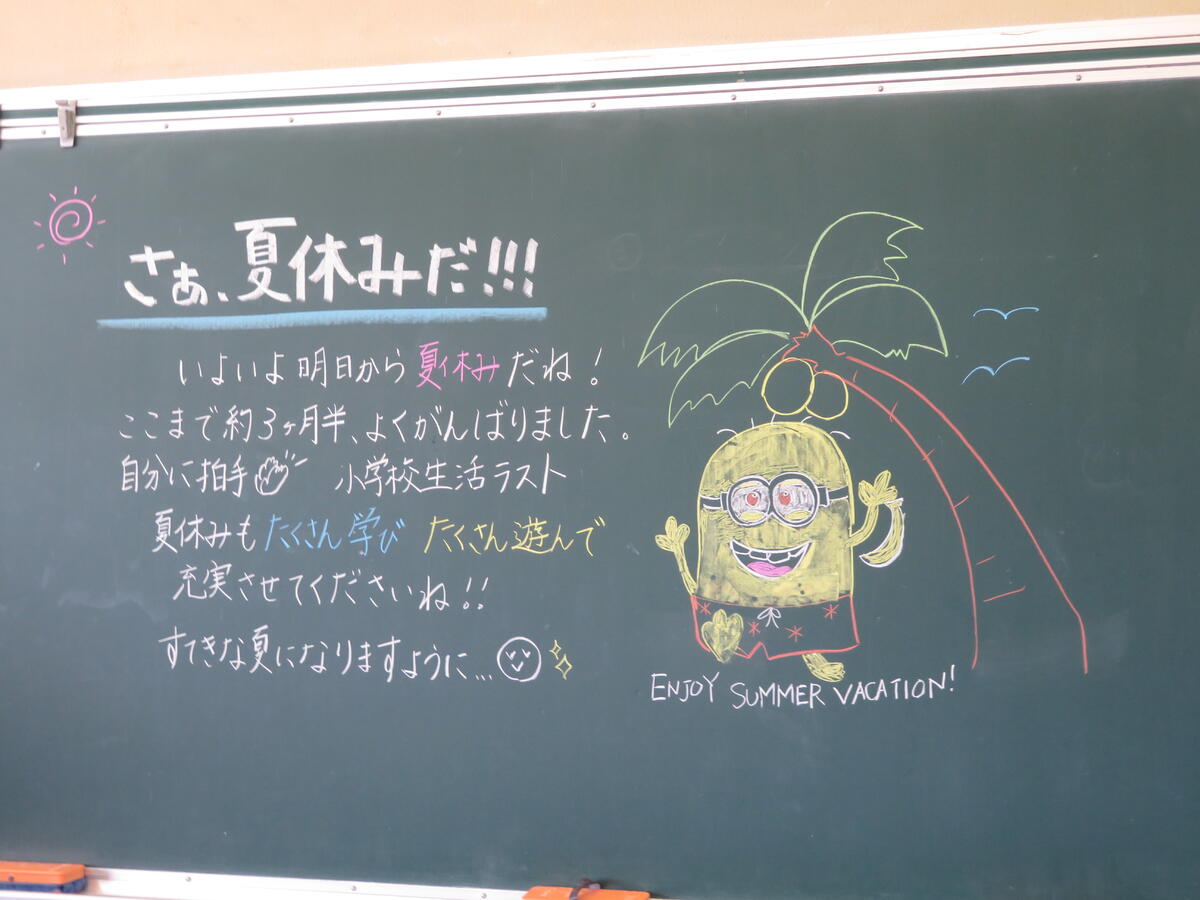 さぁ、夏休みだ!!!
いよいよ明日から夏休みだね!
ここまで約3ヶ月半、よくがんばりました。
自分に拍手 小学校生活ラスト
夏休みもたくさん学び たくさん遊んで
充実させてくださいね!!
すてきな夏になりますように...
ENJOY SUMMER VACATION!